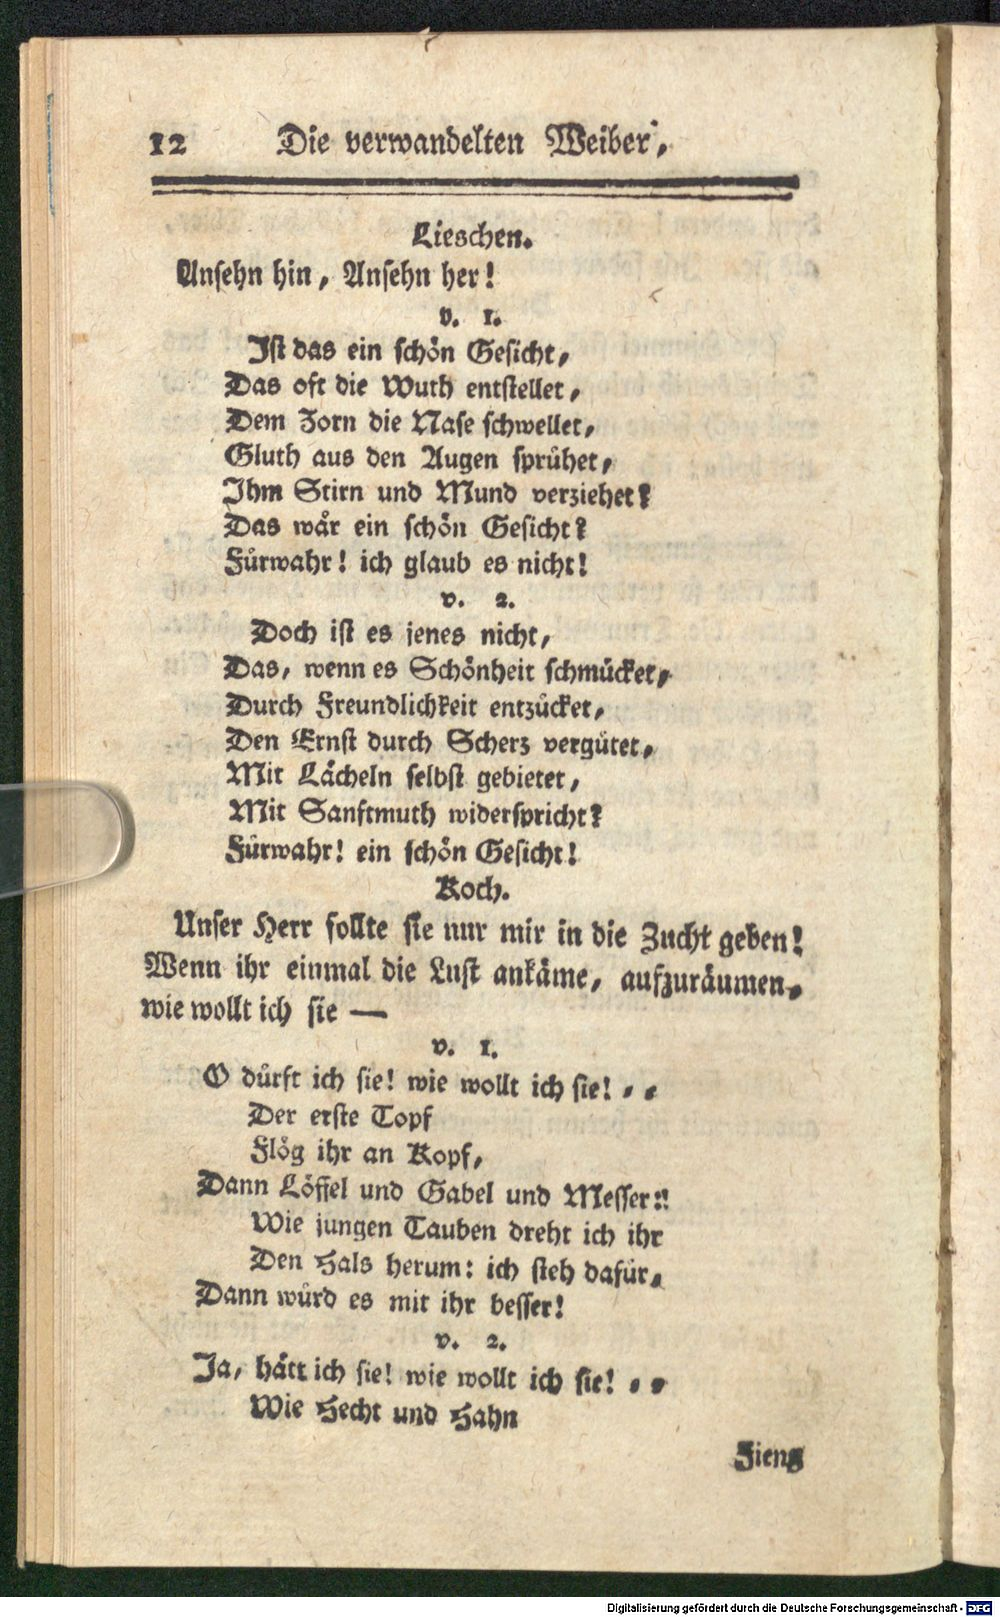 12 Die verwandelten Weiber,
Lieschen.
Ansehn hin, Ansehn her!
v. 1.
Ist das ein schön Gesicht,
Das oft die Wuth entstellet,
Dem Zorn die Nase schwellet,
Gluth aus den Augen sprühet,
Ihm Stirn und Mund verziehet?
Das wär ein schön Gesicht?
Fürwahr! ich glaub es nicht!
v. 2.
Doch ist es jenes nicht,
Das, wenn es Schönheit schmücket,
Durch Freundlichkeit entzücket,
Den Ernst durch Scherz vergütet,
Mit Lächeln selbst gebietet,
Mit Sanftmuth widerspricht?
Fürwahr! ein schön Gesicht!
Koch.
Unser Herr sollte sie nur mir in die Zucht geben!
Wenn ihr einmal die Lust ankäme, aufzuräumen,
wie wollt ich sie —
v. 1.
O dürft ich sie! wie wollt ich sie! - -
Der erste Topf
Flög ihr an Kopf,
Dann Löffel und Gabel und Messer!!
Wie jungen Tauben dreht ich ihr
Den Hals herum: ich steh dafür,
Dann würd es mit ihr besser!
v. 2.
Ja, hätt ich sie! wie wollt ich sie! - -
Wie Hecht und Hahn
Fieng
Digitalisierung gefördert durch die Deutsche Forschungsgemeinschaft - DFG